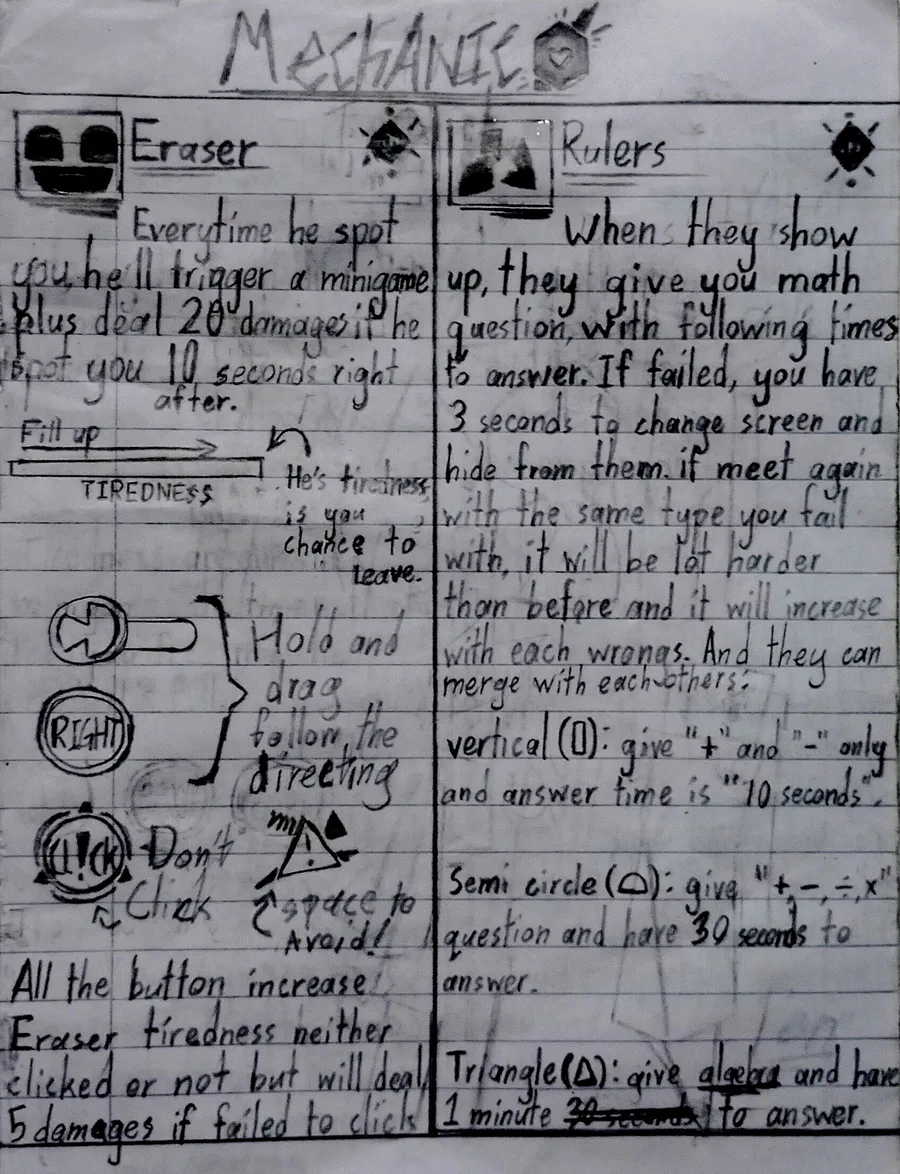 Mechanic
Eraser
Everytime he spot
you, he'll trigger a minigame
plus deal 20 damages if he
spot you 10 seconds right
after.
Fill up
TIREDNESS
He's tiredness
is you
chance to
leave.
Hold and
drag
follow the
directing
RIGHT
CL!CK
Don't
Click
space to
Avoid!
All the button increase
Eraser tiredness neither
clicked or not but will deal
5 damages if failed to click
Rulers
When they show
up, they give you math
question, with following times
to answer. If failed, you have
3 seconds to change screen and
hide from them. if meet again
with the same type you fail
with, it will be lot harder
than before and it will increase
with each wrongs. And they can
merge with each others:
vertical (▯): give "+" and "-" only
and answer time is "10 seconds".
Semi circle (⌓): give "+, -, ÷, x"
question and have 30 seconds to
answer.
Triangle (△): give algebra and have
1 minute 30 seconds to answer.